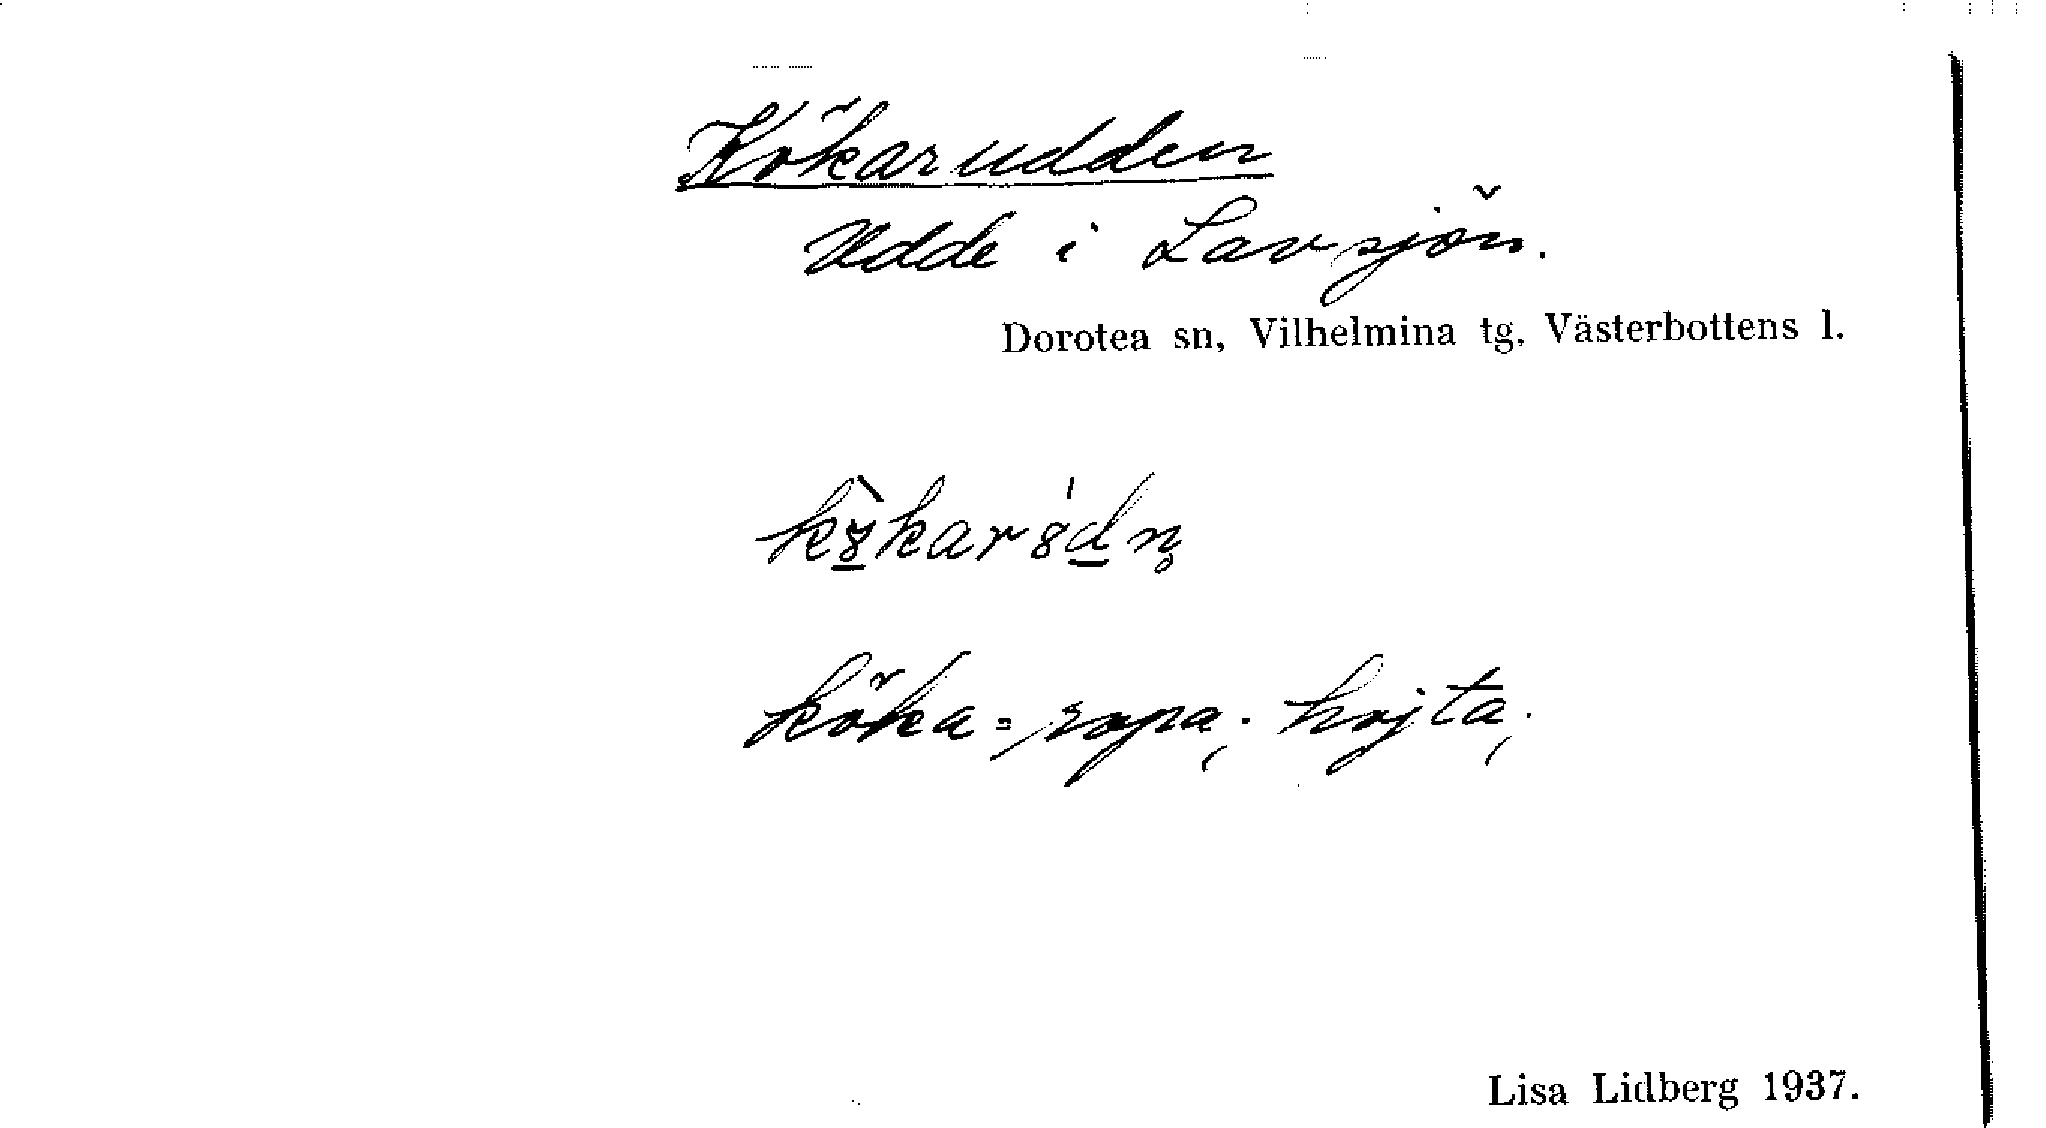 Kökarudden
Udde i Lavsjön.
Dorotea sn, Vilhelmina tg. Västerbottens l.
köka = ropa, hojta,
Lisa Lidberg 1937.